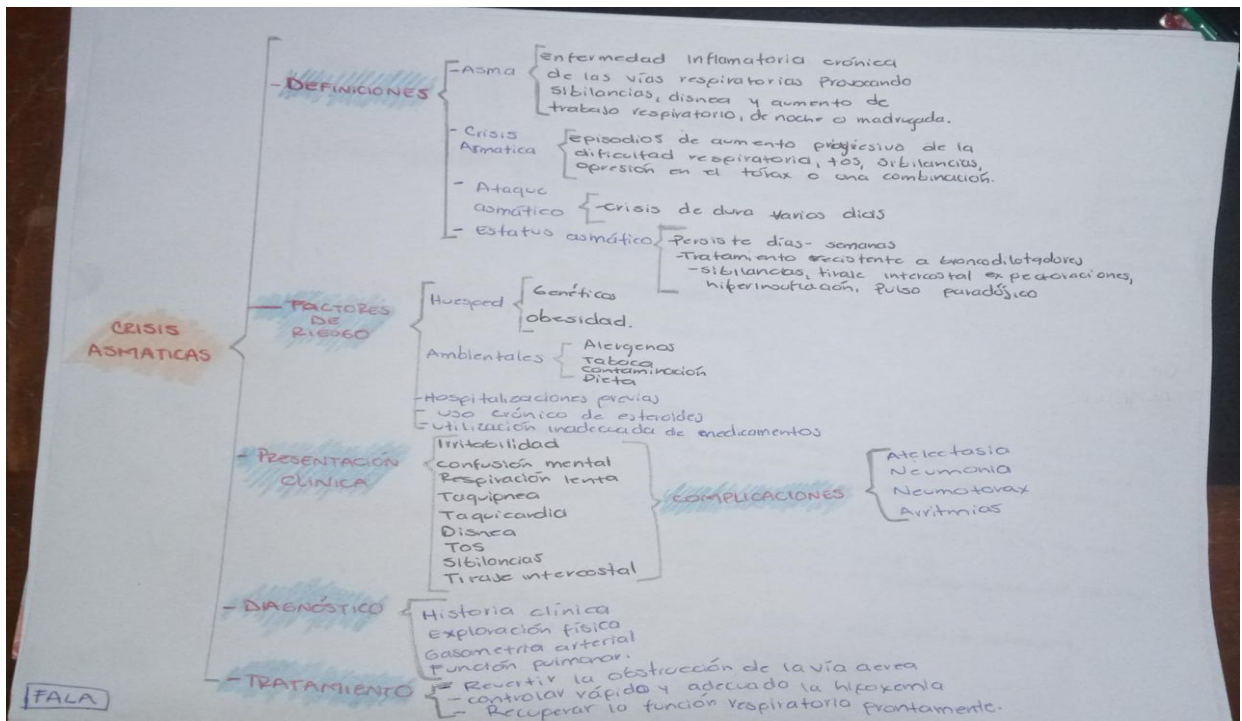 CRISIS
ASMATICAS
- DEFINICIONES
- Asma
enfermedad inflamatoria crónica
de las vías respiratorias Provocando
sibilancias, disnea y aumento de
trabajo respiratorio, de noche o madrugada.
- Crisis
Asmatica
episodios de aumento progresivo de la
dificultad respiratoria, tos, sibilancias,
opresión en el tórax o una combinación.
- Ataque
asmático
- crisis de dura varios dias
- Estatus asmático
Persiste días - semanas
- Tratamiento resistente a broncodilatadores
- sibilancias, tiraje intercostal expectoraciones,
Pulso paradójico
- FACTORES
DE
RIESGO
Huesped
Genéticos
obesidad.
Ambientales
Alergenos
Tabaco
contaminación
Dieta
- Hospitalizaciones previas
- uso crónico de esteroides
- utilización inadecuada de medicamentos
- PRESENTACIÓN
CLINICA
Irritabilidad
confusión mental
Respiración lenta
Taquipnea
Taquicardia
Disnea
Tos
Sibilancias
Tiraje intercostal
COMPLICACIONES
Atelectasia
Neumonia
Neumotorax
Arritmias
- DIAGNÓSTICO
Historia clínica
Exploración física
Gasometria arterial
Función pulmonar.
- TRATAMIENTO
- Revertir la obstrucción de la vía aerea
- controlar rápido y adecuado la hipoxemia
- Recuperar la función respiratoria prontamente.
FALA